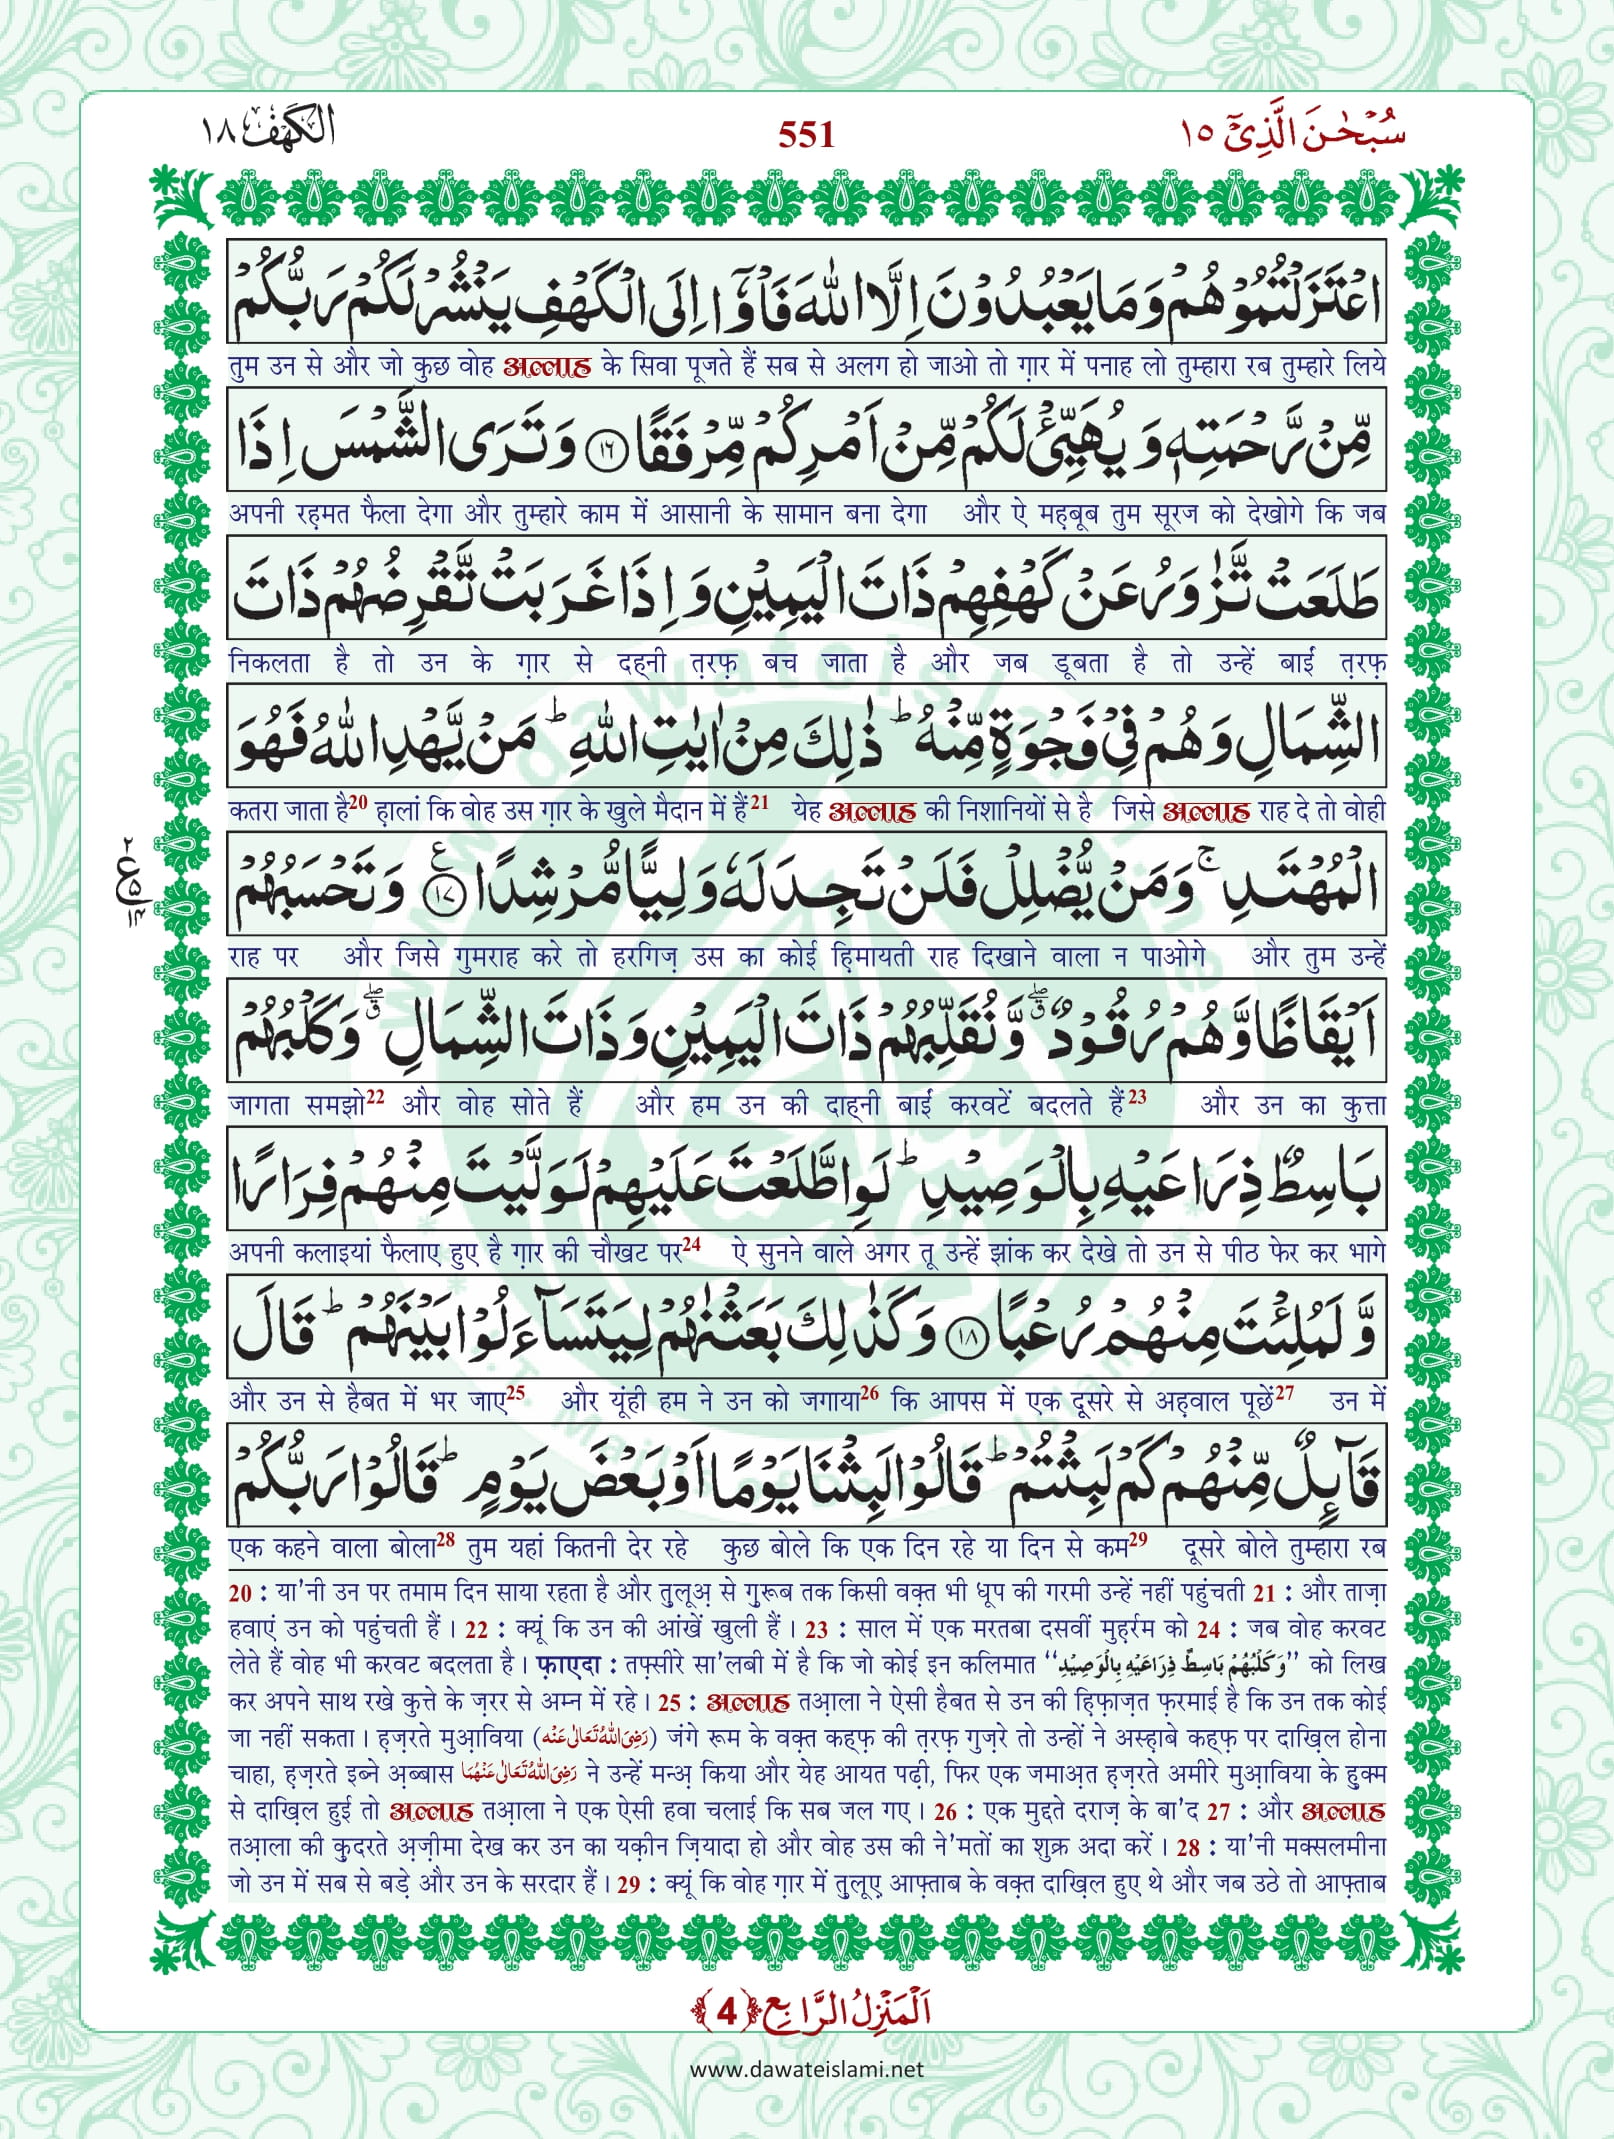 الكهف ١٨
551
سُبْحٰنَ الَّذِیْۤ ١٥
اعْتَزَلْتُمُوْهُمْ وَ مَا یَعْبُدُوْنَ اِلَّا اللّٰهَ فَاْوٗۤا اِلَى الْكَهْفِ یَنْشُرْ لَكُمْ رَبُّكُمْ
तुम उन से और जो कुछ वोह अल्लाह के सिवा पूजते हैं सब से अलग हो जाओ तो ग़ार में पनाह लो तुम्हारा रब तुम्हारे लिये
مِّنْ رَّحْمَتِهٖ وَ یُهَیِّئْ لَكُمْ مِّنْ اَمْرِكُمْ مِّرْفَقًا ﴿١٦﴾ وَ تَرَى الشَّمْسَ اِذَا
अपनी रह़मत फैला देगा और तुम्हारे काम में आसानी के सामान बना देगा और ऐ मह़बूब तुम सूरज को देखोगे कि जब
طَلَعَتْ تَّزٰوَرُ عَنْ كَهْفِهِمْ ذَاتَ الْیَمِیْنِ وَ اِذَا غَرَبَتْ تَّقْرِضُهُمْ ذَاتَ
निकलता है तो उन के ग़ार से दह्नी त़रफ़ बच जाता है और जब डूबता है तो उन्हें बाईं त़रफ़
الشِّمَالِ وَ هُمْ فِیْ فَجْوَةٍ مِّنْهُؕ ذٰلِكَ مِنْ اٰیٰتِ اللّٰهِؕ مَنْ یَّهْدِ اللّٰهُ فَهُوَ
कतरा जाता है20 ह़ालां कि वोह उस ग़ार के खुले मैदान में हैं21 येह अल्लाह की निशानियों से है जिसे अल्लाह राह दे तो वोही
الْمُهْتَدِۚ وَ مَنْ یُّضْلِلْ فَلَنْ تَجِدَ لَهٗ وَلِیًّا مُّرْشِدًا ﴿١٧﴾ع وَ تَحْسَبُهُمْ
राह पर और जिसे गुमराह करे तो हरगिज़ उस का कोई ह़िमायती राह दिखाने वाला न पाओगे और तुम उन्हें
اَیْقَاظًا وَّ هُمْ رُقُوْدٌۖۗ وَّ نُقَلِّبُهُمْ ذَاتَ الْیَمِیْنِ وَ ذَاتَ الشِّمَالِۖۗ وَ كَلْبُهُمْ
जागता समझो22 और वोह सोते हैं और हम उन की दाह्नी बाईं करवटें बदलते हैं23 और उन का कुत्ता
بَاسِطٌ ذِرَاعَیْهِ بِالْوَصِیْدِؕ لَوِ اطَّلَعْتَ عَلَیْهِمْ لَوَلَّیْتَ مِنْهُمْ فِرَارًا
अपनी कलाइयां फैलाए हुए है ग़ार की चौखट पर24 ऐ सुनने वाले अगर तू उन्हें झांक कर देखे तो उन से पीठ फेर कर भागे
وَّ لَمُلِئْتَ مِنْهُمْ رُعْبًا ﴿١٨﴾ وَ كَذٰلِكَ بَعَثْنٰهُمْ لِیَتَسَآءَلُوْا بَیْنَهُمْؕ قَالَ
और उन से हैबत में भर जाए25 और यूंही हम ने उन को जगाया26 कि आपस में एक दूसरे से अह़वाल पूछें27 उन में
قَآىٕلٌ مِّنْهُمْ كَمْ لَبِثْتُمْؕ قَالُوْا لَبِثْنَا یَوْمًا اَوْ بَعْضَ یَوْمٍؕ قَالُوْا رَبُّكُمْ
एक कहने वाला बोला28 तुम यहां कितनी देर रहे कुछ बोले कि एक दिन रहे या दिन से कम29 दूसरे बोले तुम्हारा रब
20 : या'नी उन पर तमाम दिन साया रहता है और त़ुलूअ़ से ग़ुरूब तक किसी वक़्त भी धूप की गरमी उन्हें नहीं पहुंचती 21 : और ताज़ा
हवाएं उन को पहुंचती हैं । 22 : क्यूं कि उन की आंखें खुली हैं । 23 : साल में एक मरतबा दसवीं मुह़र्रम को 24 : जब वोह करवट
लेते हैं वोह भी करवट बदलता है । फ़ाएदा : तफ़्सीरे सा'लबी में है कि जो कोई इन कलिमात ‘‘وَ كَلْبُهُمْ بَاسِطٌ ذِرَاعَیْهِ بِالْوَصِیْدِ’’ को लिख
कर अपने साथ रखे कुत्ते के ज़रर से अम्न में रहे । 25 : अल्लाह तआ़ला ने ऐसी हैबत से उन की ह़िफ़ाज़त फ़रमाई है कि उन तक कोई
जा नहीं सकता । ह़ज़रते मुआ़विया (رَضِیَ اللّٰهُ تَعَالٰی عَنْه) जंगे रूम के वक़्त कह्फ़ की त़रफ़ गुज़रे तो उन्हों ने अस्ह़ाबे कह्फ़ पर दाख़िल होना
चाहा, ह़ज़रते इब्ने अ़ब्बास رَضِیَ اللّٰهُ تَعَالٰی عَنْهُمَا ने उन्हें मन्अ़ किया और येह आयत पढ़ी, फिर एक जमाअ़त ह़ज़रते अमीरे मुआ़विया के ह़ुक्म
से दाख़िल हुई तो अल्लाह तआ़ला ने एक ऐसी हवा चलाई कि सब जल गए । 26 : एक मुद्दते दराज़ के बा'द 27 : और अल्लाह
तआ़ला की क़ुदरते अ़ज़ीमा देख कर उन का यक़ीन ज़ियादा हो और वोह उस की ने'मतों का शुक्र अदा करें । 28 : या'नी मक्सलमीना
जो उन में सब से बड़े और उन के सरदार हैं । 29 : क्यूं कि वोह ग़ार में त़ुलूए आफ़्ताब के वक़्त दाख़िल हुए थे और जब उठे तो आफ़्ताब
اَلْمَنْزِلُ الرَّابِع ﴿4﴾
www.dawateislami.net